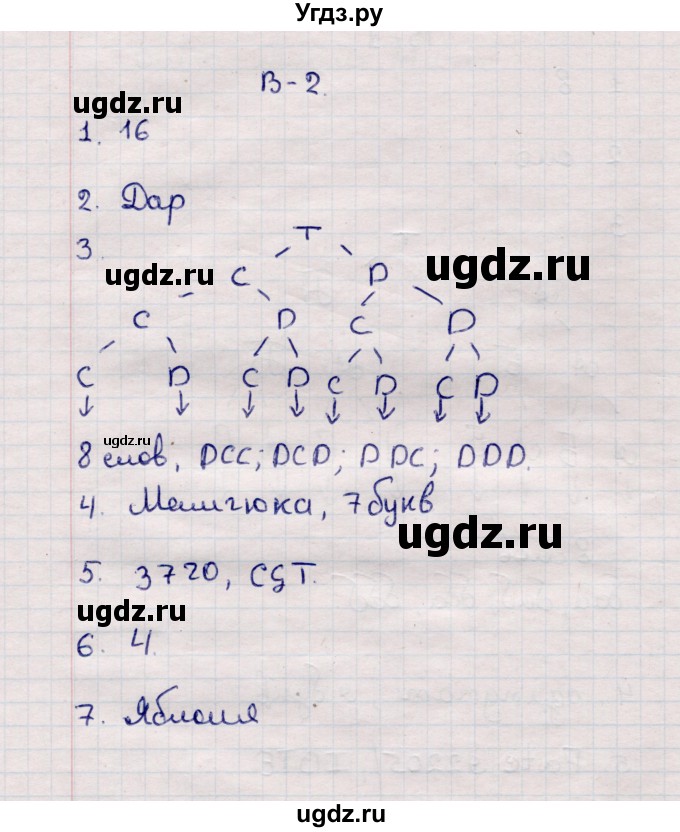 Угдз.ру
В-2.
ugdz.ru
1. 16
2. Дар
3.
T
ugdz.ru
C D
ugdz.ru
C D C D
C D C D C D C D
ugdz.ru
8 слов, DCC; DCD; DDC; DDD.
4. 7 букв
ugdz.ru
5. 3720, CGT.
ugdz.ru
6. 4.
7.
ugdz.ru